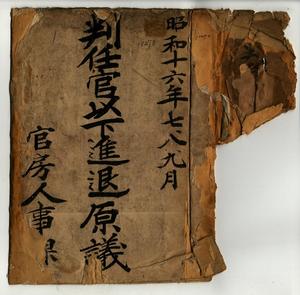 昭和十六年七八九月
判任官以下進退原議
官房人事課